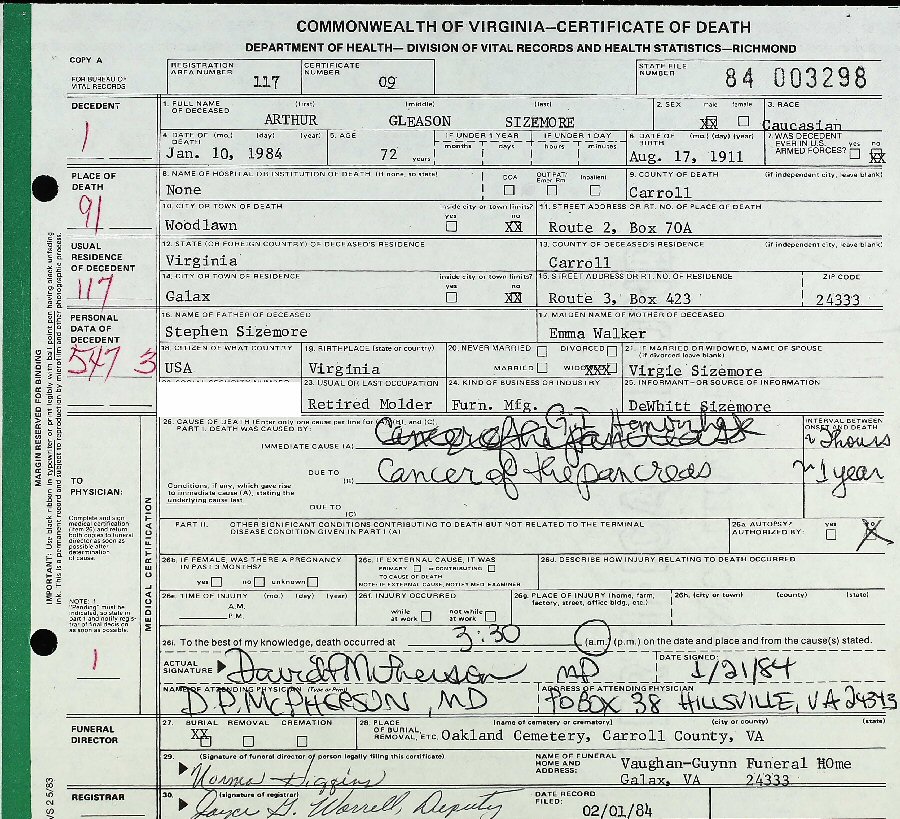 COMMONWEALTH OF VIRGINIA—CERTIFICATE OF DEATH
DEPARTMENT OF HEALTH— DIVISION OF VITAL RECORDS AND HEALTH STATISTICS—RICHMOND
COPY A
FOR BUREAU OF VITAL RECORDS
REGISTRATION AREA NUMBER 117
CERTIFICATE NUMBER 09
STATE FILE NUMBER 84 003298
DECEDENT
1
1. FULL NAME OF DECEASED (first) (middle) (last)
ARTHUR GLEASON SIZEMORE
2. SEX male female
XX
3. RACE
Caucasian
4. DATE OF DEATH (mo.) (day) (year)
Jan. 10, 1984
5. AGE
72 years
IF UNDER 1 YEAR months days
IF UNDER 1 DAY hours minutes
6. DATE OF BIRTH (mo.) (day) (year)
Aug. 17, 1911
7. WAS DECEDENT EVER IN U.S. ARMED FORCES? yes no
XX
PLACE OF DEATH
91
8. NAME OF HOSPITAL OR INSTITUTION OF DEATH (if none, so state)
None
DOA OUT PAT/ Emer. Rm Inpatient
9. COUNTY OF DEATH (if independent city, leave blank)
Carroll
10. CITY OR TOWN OF DEATH inside city or town limits? yes no
Woodlawn XX
11. STREET ADDRESS OR RT. NO. OF PLACE OF DEATH
Route 2, Box 70A
USUAL RESIDENCE OF DECEDENT
117
12. STATE (OR FOREIGN COUNTRY) OF DECEASED'S RESIDENCE
Virginia
13. COUNTY OF DECEASED'S RESIDENCE (if independent city, leave blank)
Carroll
14. CITY OR TOWN OF RESIDENCE inside city or town limits? yes no
Galax XX
15. STREET ADDRESS OR RT. NO. OF RESIDENCE ZIP CODE
Route 3, Box 423 24333
PERSONAL DATA OF DECEDENT
547 3
16. NAME OF FATHER OF DECEASED
Stephen Sizemore
17. MAIDEN NAME OF MOTHER OF DECEASED
Emma Walker
18. CITIZEN OF WHAT COUNTRY
USA
19. BIRTHPLACE (state or country)
Virginia
20. NEVER MARRIED DIVORCED
MARRIED WIDOXXX
21. IF MARRIED OR WIDOWED, NAME OF SPOUSE
(if divorced leave blank)
Virgie Sizemore
23. USUAL OR LAST OCCUPATION
Retired Molder
24. KIND OF BUSINESS OR INDUSTRY
Furn. Mfg.
25. INFORMANT—OR SOURCE OF INFORMATION
DeWhitt Sizemore
MARGIN RESERVED FOR BINDING
IMPORTANT: Use black ribbon in typewriter or print legibly with ball point pen having black unfading
ink. This is a permanent record and subject to reproduction by microfilm and other photographic process.
TO PHYSICIAN:
Complete and sign medical certification (item 26) and return both copies to funeral director as soon as possible after determination of cause.
NOTE: If "Pending" must be indicated, so state in part I and notify registrar of final decision as soon as possible.
1
MEDICAL CERTIFICATION
26. CAUSE OF DEATH (Enter only one cause per line for (A), (B), and (C)
PART I. DEATH WAS CAUSED BY:
IMMEDIATE CAUSE (A)
G.I. Hemorrhage
INTERVAL BETWEEN ONSET AND DEATH
~ 2 hours
DUE TO
(B) Cancer of the pancreas
~ 1 year
Conditions, if any, which gave rise to immediate cause (A), stating the underlying cause last
DUE TO
(C)
PART II. OTHER SIGNIFICANT CONDITIONS CONTRIBUTING TO DEATH BUT NOT RELATED TO THE TERMINAL DISEASE CONDITION GIVEN IN PART I (A)
26a. AUTOPSY? AUTHORIZED BY: yes no
X
26b. IF FEMALE, WAS THERE A PREGNANCY IN PAST 3 MONTHS?
yes no unknown
26c. IF EXTERNAL CAUSE, IT WAS
PRIMARY or CONTRIBUTING
TO CAUSE OF DEATH
NOTE: IF EXTERNAL CAUSE, NOTIFY MED. EXAMINER
26d. DESCRIBE HOW INJURY RELATING TO DEATH OCCURRED
26e. TIME OF INJURY (mo.) (day) (year)
A.M.
P.M.
26f. INJURY OCCURRED
while at work not while at work
26g. PLACE OF INJURY (home, farm, factory, street, office bldg., etc.)
26h. (city or town) (county) (state)
26i. To the best of my knowledge, death occurred at 3:30 (a.m.) (p.m.) on the date and place and from the cause(s) stated.
ACTUAL SIGNATURE David P McPherson MD
DATE SIGNED 1/21/84
NAME OF ATTENDING PHYSICIAN (Type or Print)
D.P. MCPHERSON, MD
ADDRESS OF ATTENDING PHYSICIAN
PO BOX 38 HILLSVILLE, VA 24343
FUNERAL DIRECTOR
27. BURIAL REMOVAL CREMATION
XX
28. PLACE OF BURIAL, REMOVAL, ETC. (name of cemetery or crematory) (city or county) (state)
Oakland Cemetery, Carroll County, VA
29. (Signature of funeral director or person legally filing this certificate)
Norma Higgins
NAME OF FUNERAL HOME AND ADDRESS:
Vaughan-Guynn Funeral HOme
Galax, VA 24333
REGISTRAR
30. (signature of registrar)
Joyce G. Worrell, Deputy
DATE RECORD FILED:
02/01/84
VS 2 5/83